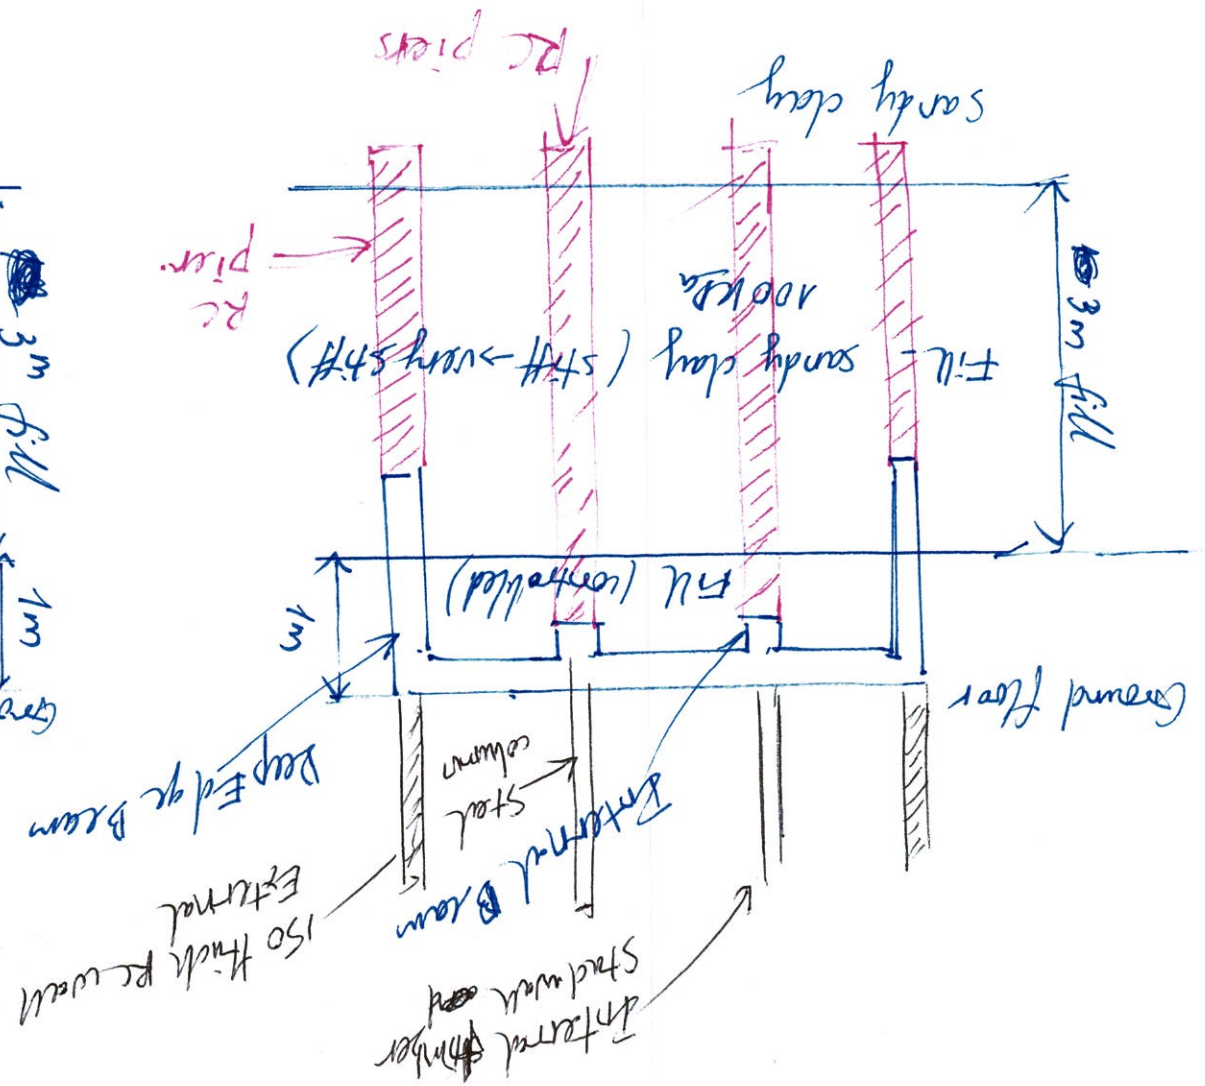 Internal timber
stud wall
150 thick RC wall
External
Internal Beam
Steel
column
Deep Edge Beam
Ground floor
1m
Fill (controlled)
3m fill
Fill - sandy clay (stiff → very stiff)
100 kPa
RC
pier
sandy clay
RC piers
Gro
1m
3m fill